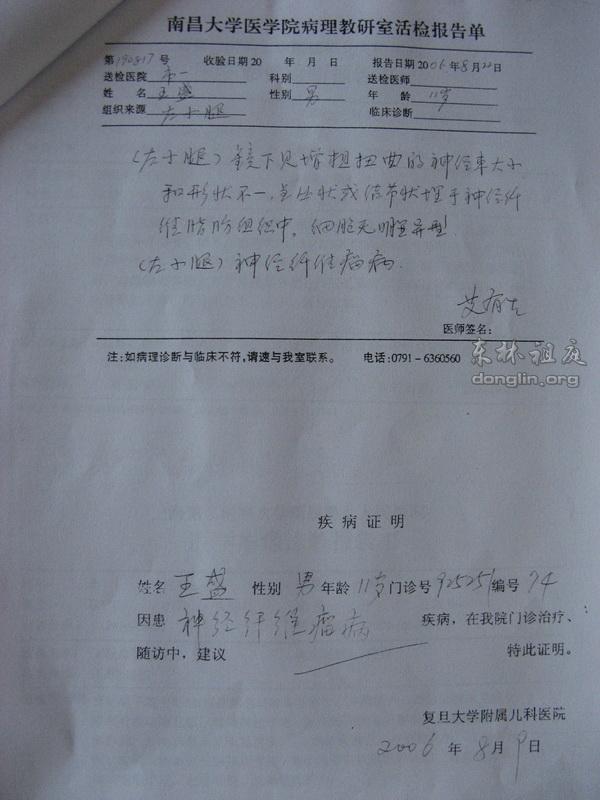 南昌大学医学院病理教研室活检报告单
第190817号 收验日期20 年 月 日 报告日期2006年8月22日
送检医院 市一 科别 送检医师
姓名 王盛 性别 男 年龄 11岁
组织来源 左小腿 临床诊断
(左小腿)镜下见增粗扭曲的神经束大小
和形状不一,呈丛状或结节状埋于神经纤
维脂肪组织中。细胞无明显异型
(左小腿)神经纤维瘤病.
医师签名:
注:如病理诊断与临床不符,请速与我室联系。 电话:0791-6360560
东林祖庭
donglin.org
疾病证明
姓名 王盛 性别 男 年龄 11岁 门诊号 925251 编号 74
因患 神经纤维瘤病 疾病,在我院门诊治疗、
随访中,建议 特此证明。
复旦大学附属儿科医院
2006年8月9日